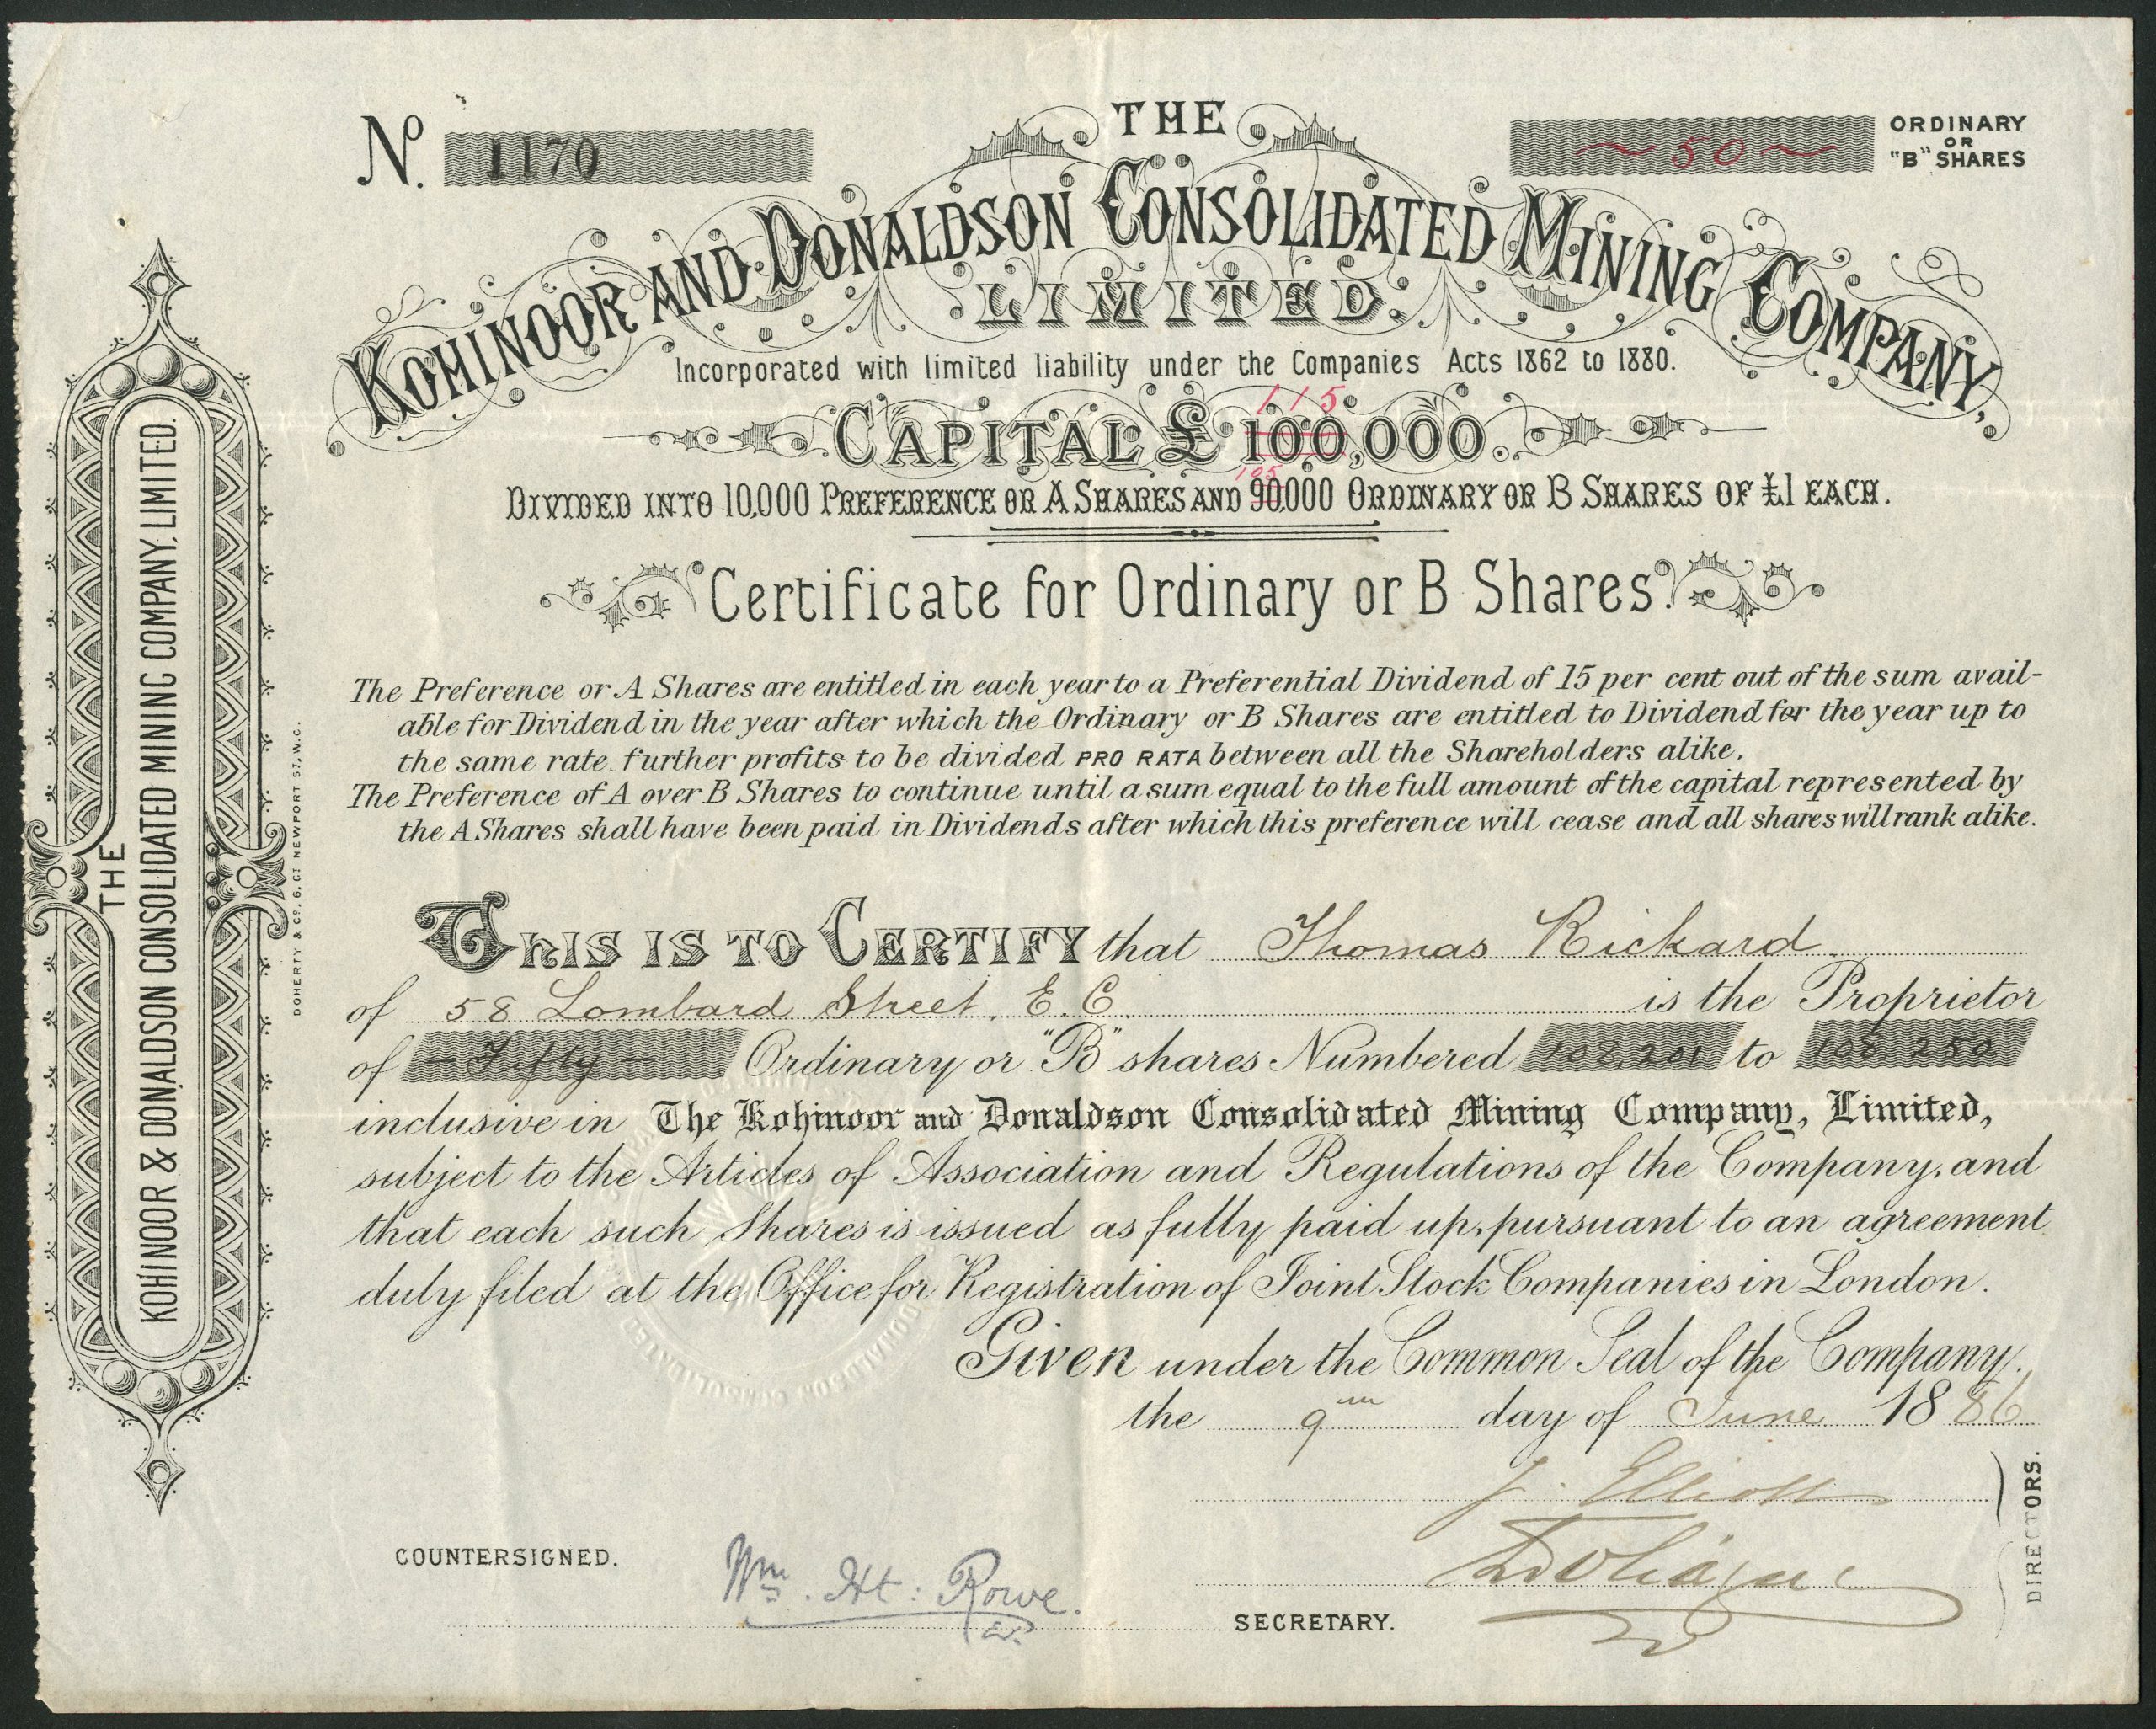 THE
KOHINOOR & DONALDSON CONSOLIDATED MINING COMPANY, LIMITED.
DOHERTY & Co. 6, Gt NEWPORT ST, W.C.
No. 1170
~ 50 ~
ORDINARY
OR
"B" SHARES
THE
KOHINOOR AND DONALDSON CONSOLIDATED MINING COMPANY,
LIMITED.
Incorporated with limited liability under the Companies Acts 1862 to 1880.
115
CAPITAL £ 100,000.
DIVIDED INTO 10,000 PREFERENCE OR A SHARES AND 90,000 ORDINARY OR B SHARES OF £1 EACH.
Certificate for Ordinary or B Shares.
The Preference or A Shares are entitled in each year to a Preferential Dividend of 15 per cent out of the sum avail-
able for Dividend in the year after which the Ordinary or B Shares are entitled to Dividend for the year up to
the same rate further profits to be divided PRO RATA between all the Shareholders alike.
The Preference of A over B Shares to continue until a sum equal to the full amount of the capital represented by
the A Shares shall have been paid in Dividends after which this preference will cease and all shares will rank alike.
THIS IS TO CERTIFY that Thomas Rickard
of 58 Lombard Street. E.C. is the Proprietor
of — Fifty — Ordinary or "B" shares Numbered 108,201 to 108 250
inclusive in The Kohinoor and Donaldson Consolidated Mining Company, Limited,
subject to the Articles of Association and Regulations of the Company, and
that each such Shares is issued as fully paid up, pursuant to an agreement
duly filed at the Office for Registration of Joint Stock Companies in London.
Given under the Common Seal of the Company.
the 9th day of June 1886
J. Elliott
DIRECTORS.
COUNTERSIGNED.
Wm. Hy: Rowe.
SECRETARY.